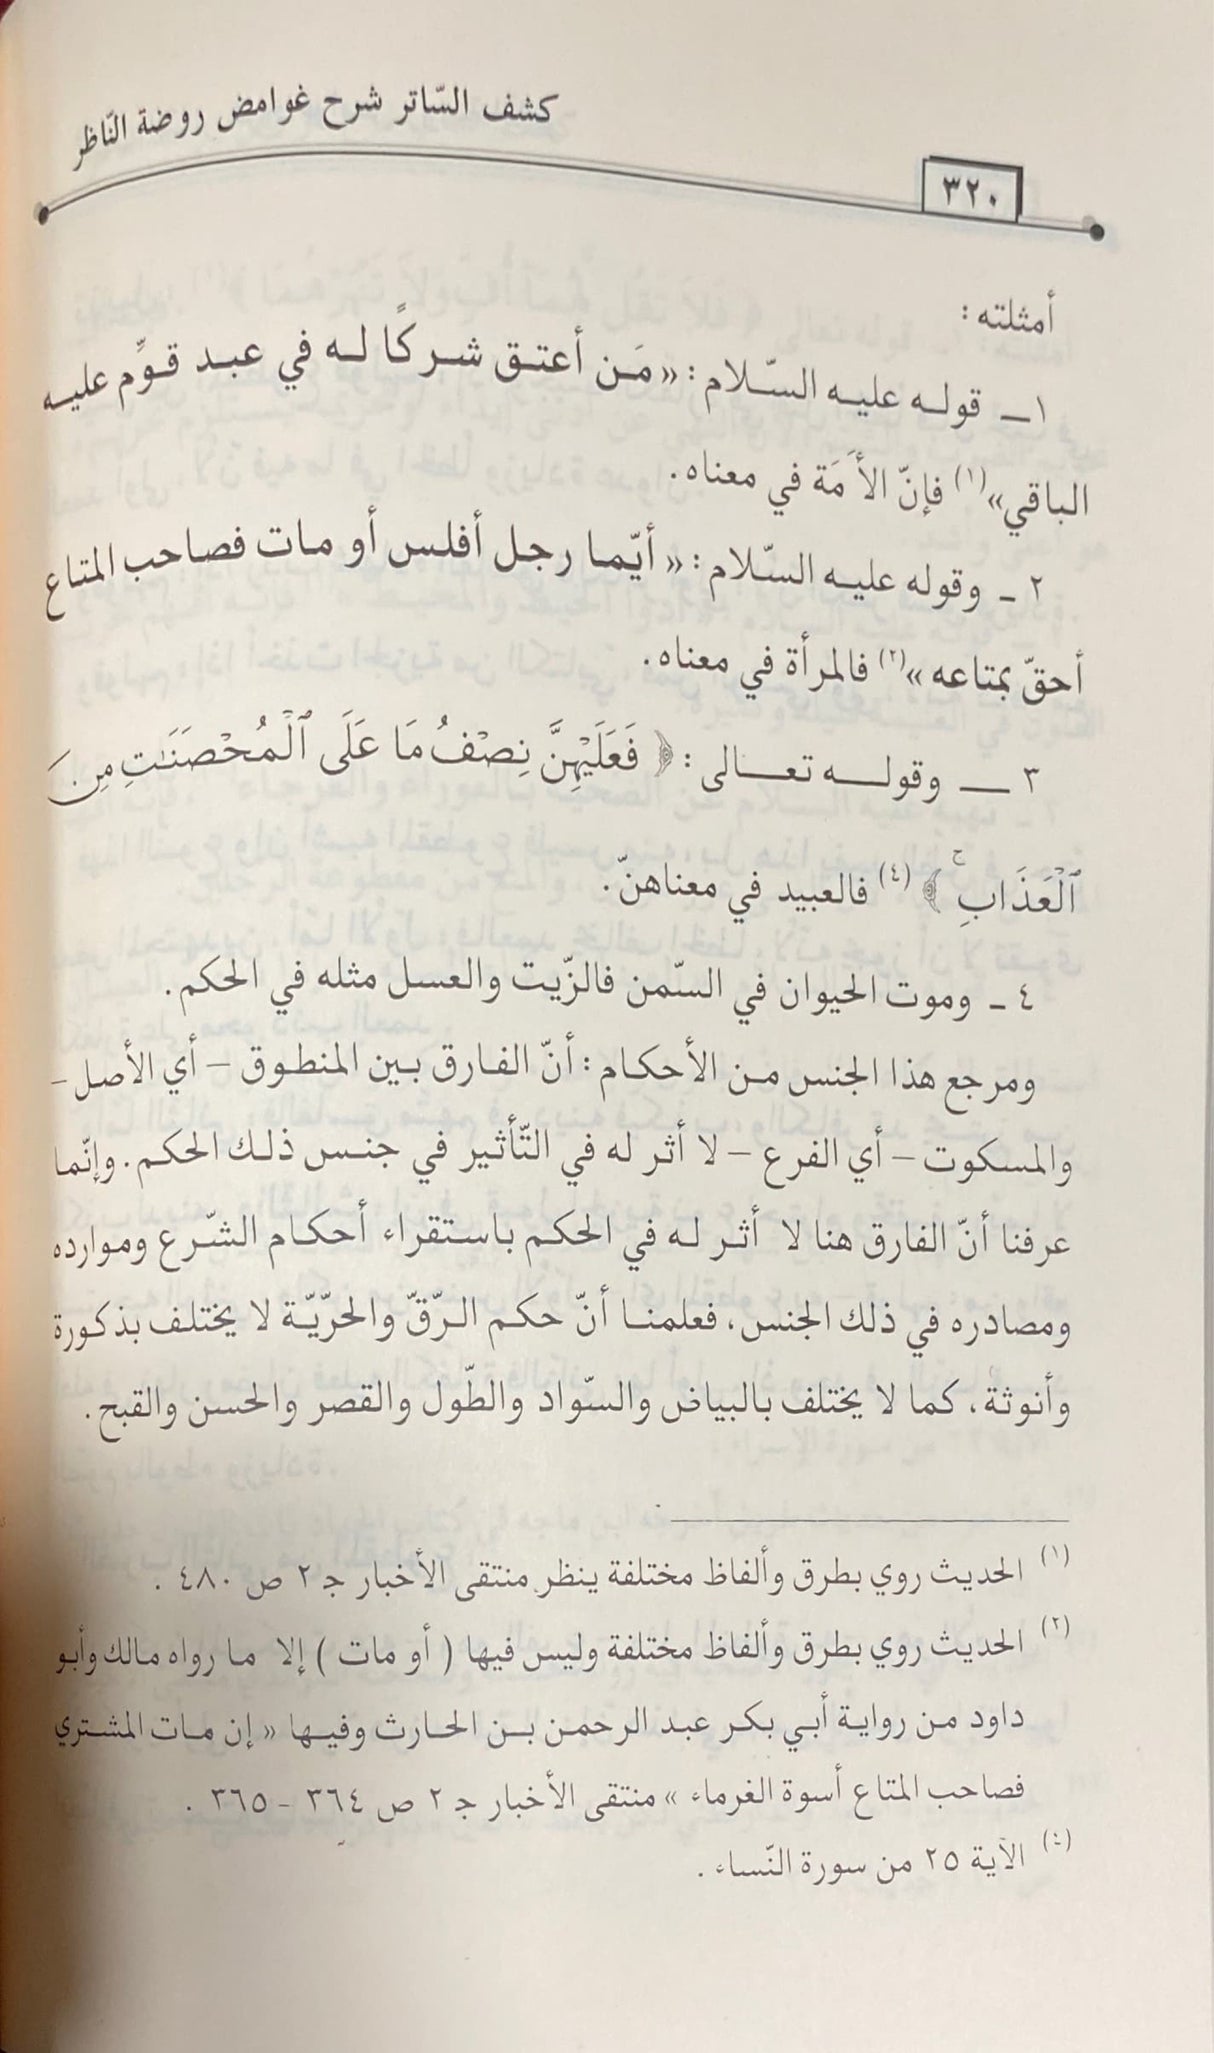 كشف السّاتر شرح غوامض روضة النّاظر
٣٢٠
أمثلته :
١ـ قوله عليه السّلام : « مَن أعتق شركًا له في عبد قوِّم عليه
الباقي»(١) فإنّ الأَمَة في معناه.
٢ ـ وقوله عليه السّلام : « أيّما رجل أفلس أو مات فصاحب المتاع
أحقّ بمتاعه »(٢) فالمرأة في معناه.
٣ ـ وقوله تعالى : ﴿ فَعَلَيْهِنَّ نِصْفُ مَا عَلَى ٱلْمُحْصَنَٰتِ مِنَ
ٱلْعَذَابِ ۚ ﴾ (٤) فالعبيد في معناهنّ.
٤ ـ وموت الحيوان في السّمن فالزّيت والعسل مثله في الحكم.
ومرجع هذا الجنس من الأحكام : أنّ الفارق بين المنطوق – أي الأصل –
والمسكوت – أي الفرع – لا أثر له في التّأثير في جنس ذلك الحكم. وإنّما
عرفنا أنّ الفارق هنا لا أثر له في الحكم باستقراء أحكام الشّرع وموارده
ومصادره في ذلك الجنس، فعلمنا أنّ حكم الرّقّ والحرّيّة لا يختلف بذكورة
وأنوثة، كما لا يختلف بالبياض والسّواد والطّول والقصر والحسن والقبح.
(١) الحديث روي بطرق وألفاظ مختلفة ينظر منتقى الأخبار جـ ٢ ص ٤٨٠ .
(٢) الحديث روي بطرق وألفاظ مختلفة وليس فيها ( أو مات ) إلا ما رواه مالك وأبو
داود من رواية أبي بكر عبد الرحمن بن الحارث وفيها « إن مات المشتري
فصاحب المتاع أسوة الغرماء » منتقى الأخبار جـ ٢ ص ٣٦٤ - ٣٦٥ .
(٤) الآية ٢٥ من سورة النّساء .